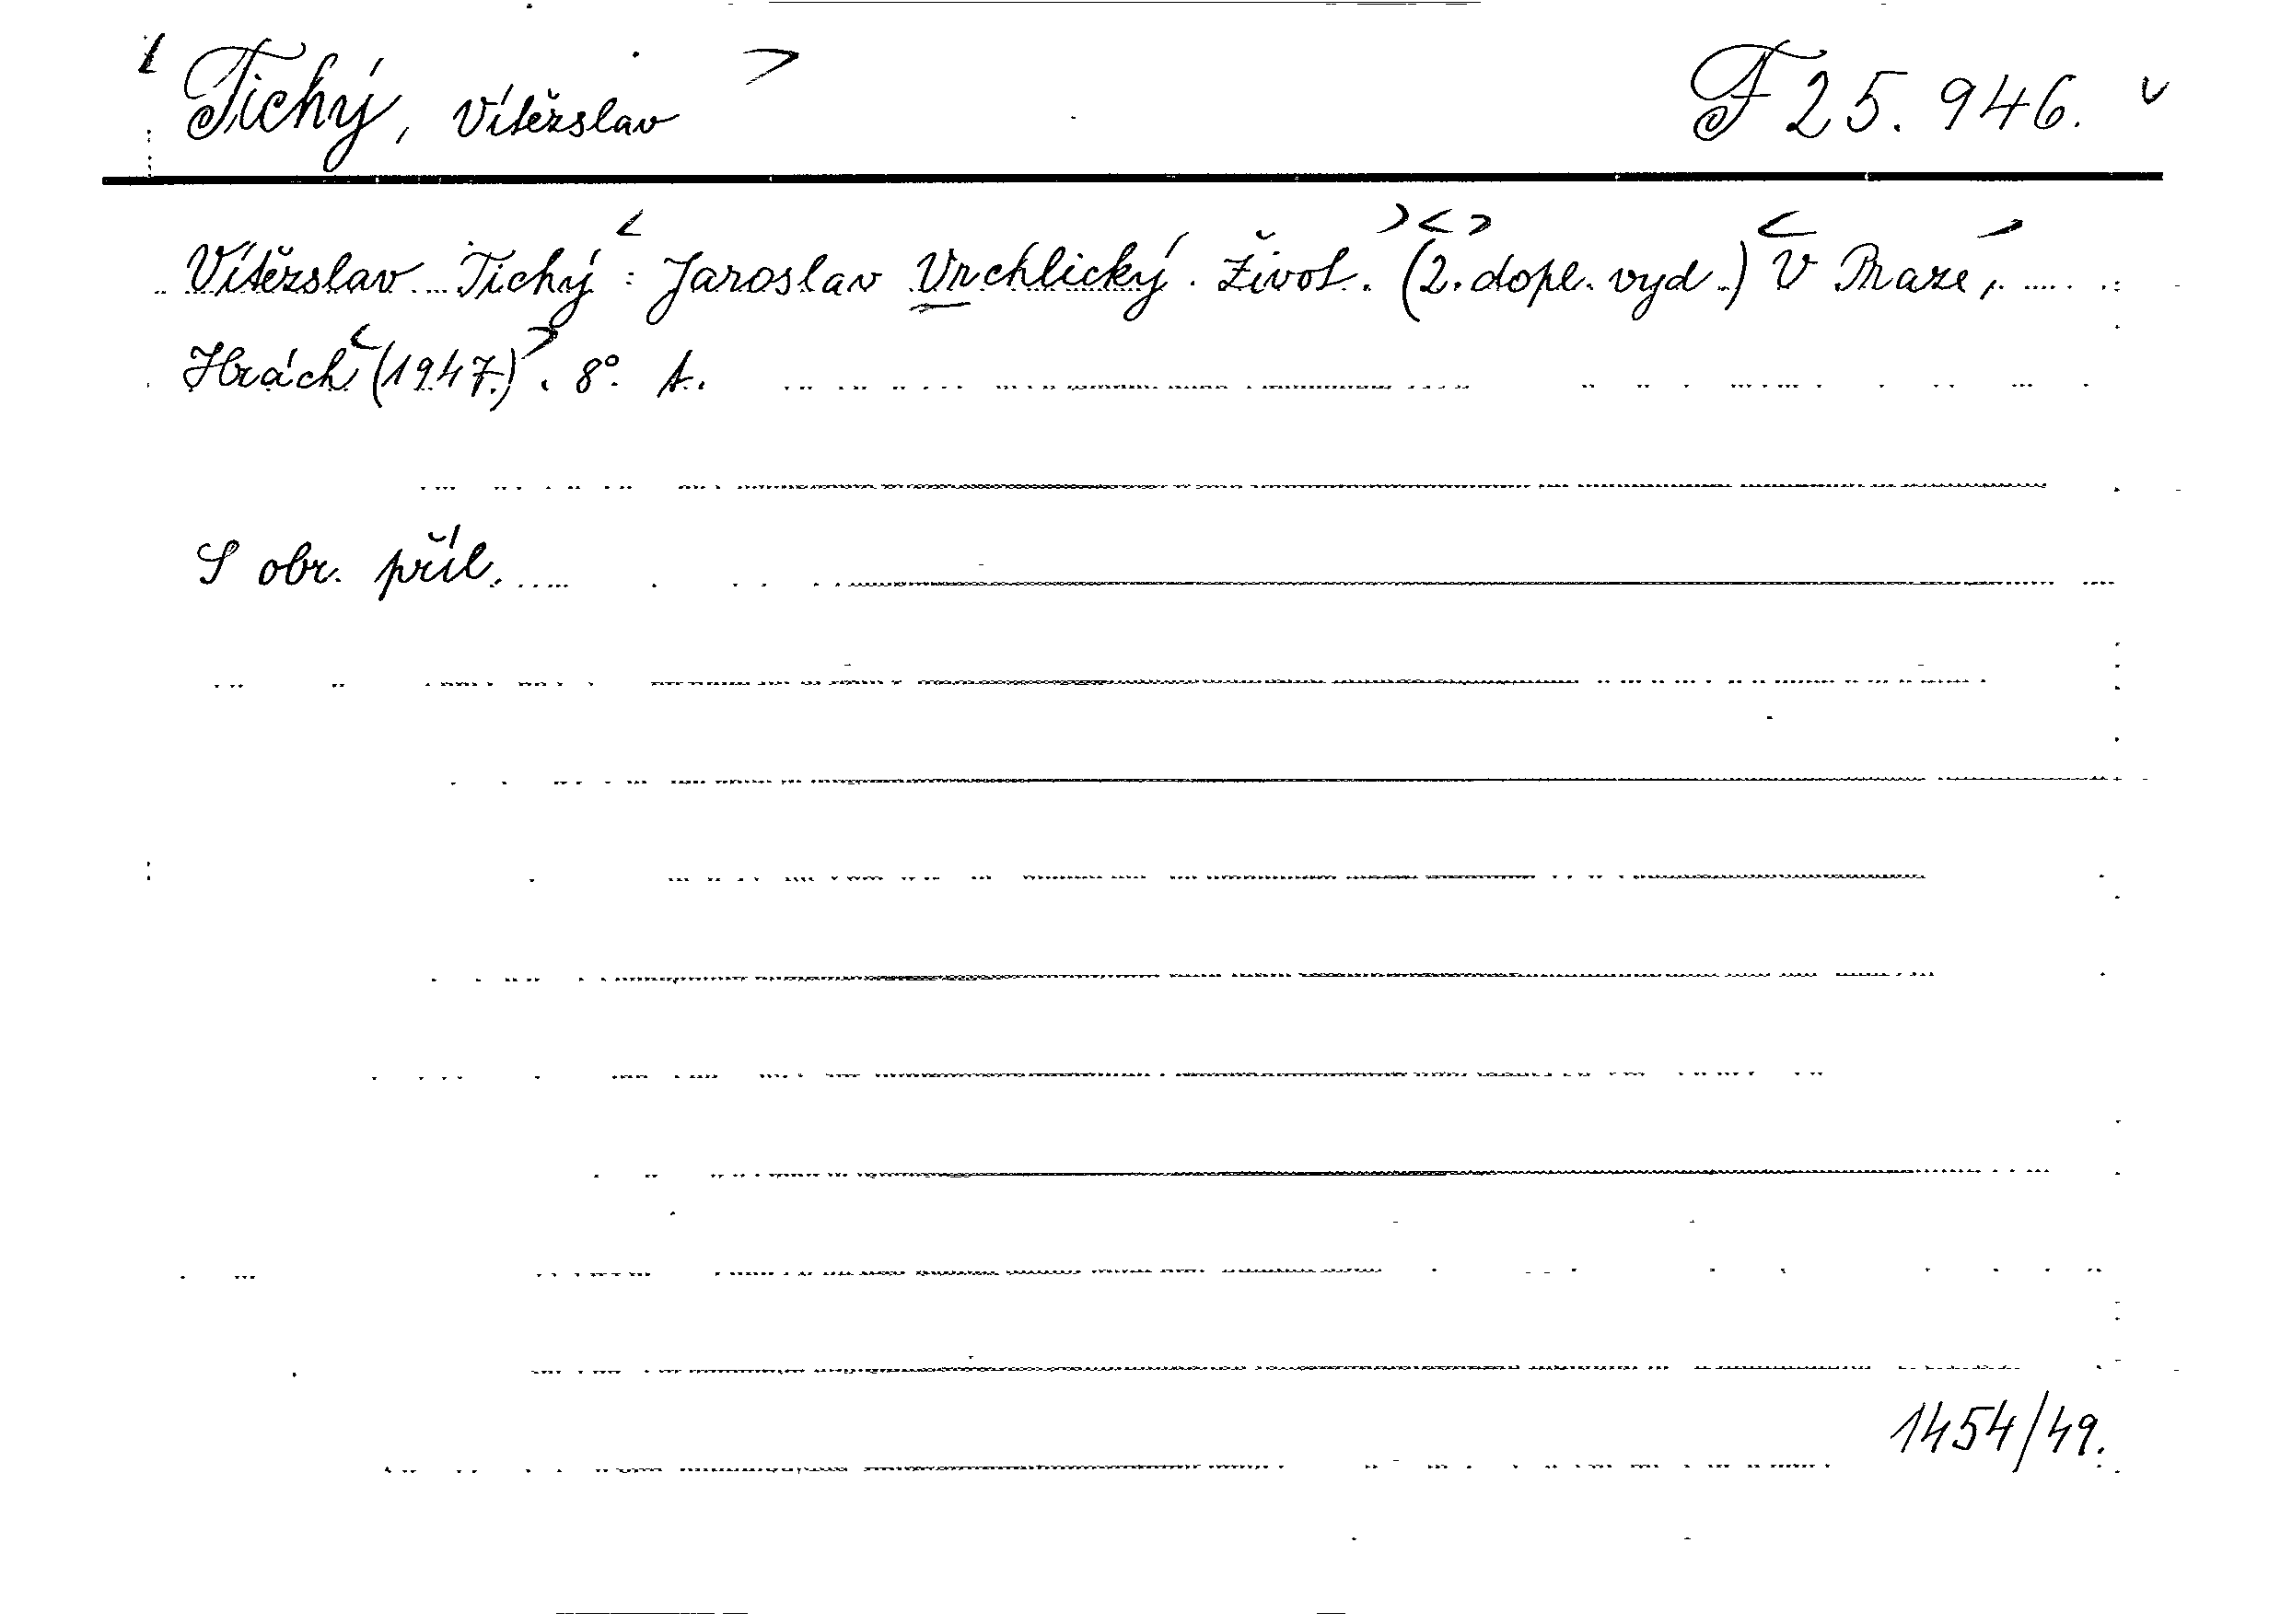 Tichý, Vítězslav F 25.946.
Vítězslav Tichý: Jaroslav Vrchlický. Život. (2. dopl. vyd.) V Praze,
Hrách (1947.). 8°.
S obr. příl.
1454/49.